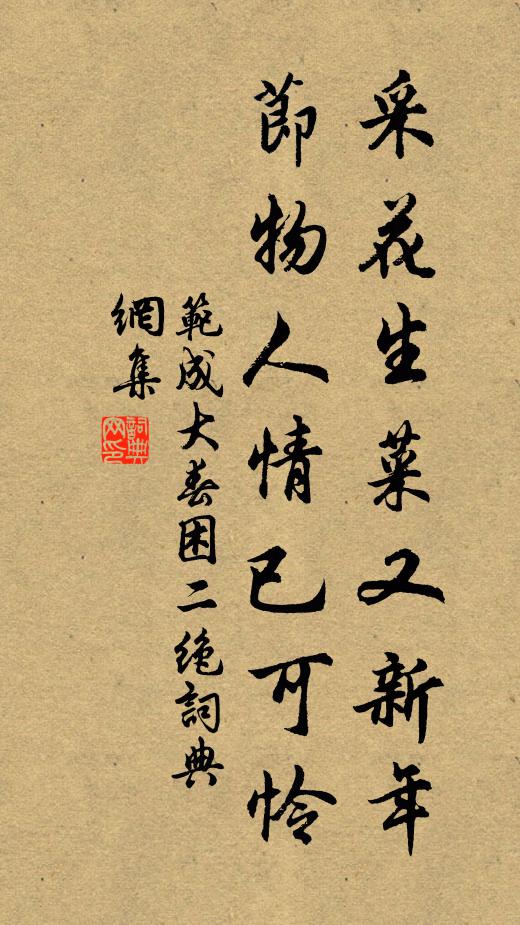 采花生菜又新年
莭物人情已可怜
範成大春困二绝詞典
網集
詞典
网印